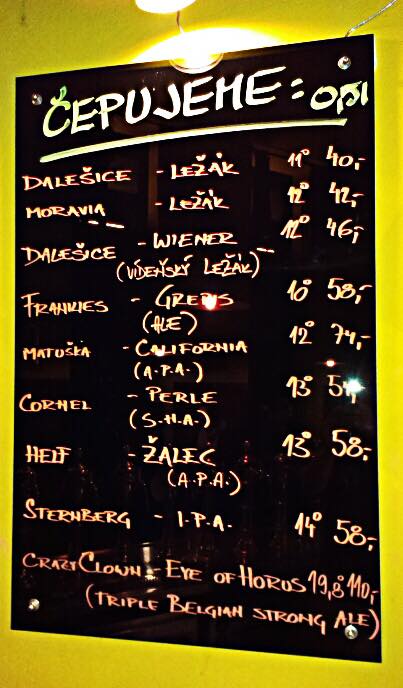 ČEPUJEME: 0,5l
DALEŠICE - LEŽÁK 11° 40,-
MORAVIA - LEŽÁK 12° 42,-
DALEŠICE - WIENER 12° 46,-
(VÍDEŇSKÝ LEŽÁK)
FRANKIES - 10° 58,-
(ALE)
MATUŠKA - CALIFORNIA 12° 74,-
(A.P.A.)
CORNEL - PERLE 13°
(S.H.A.)
HELF - ŽALEC 13° 58,-
(A.P.A.)
STERNBERG - I.P.A. 14° 58,-
CRAZY CLOWN - EYE OF HORUS 19,8° 110,-
(TRIPLE BELGIAN STRONG ALE)